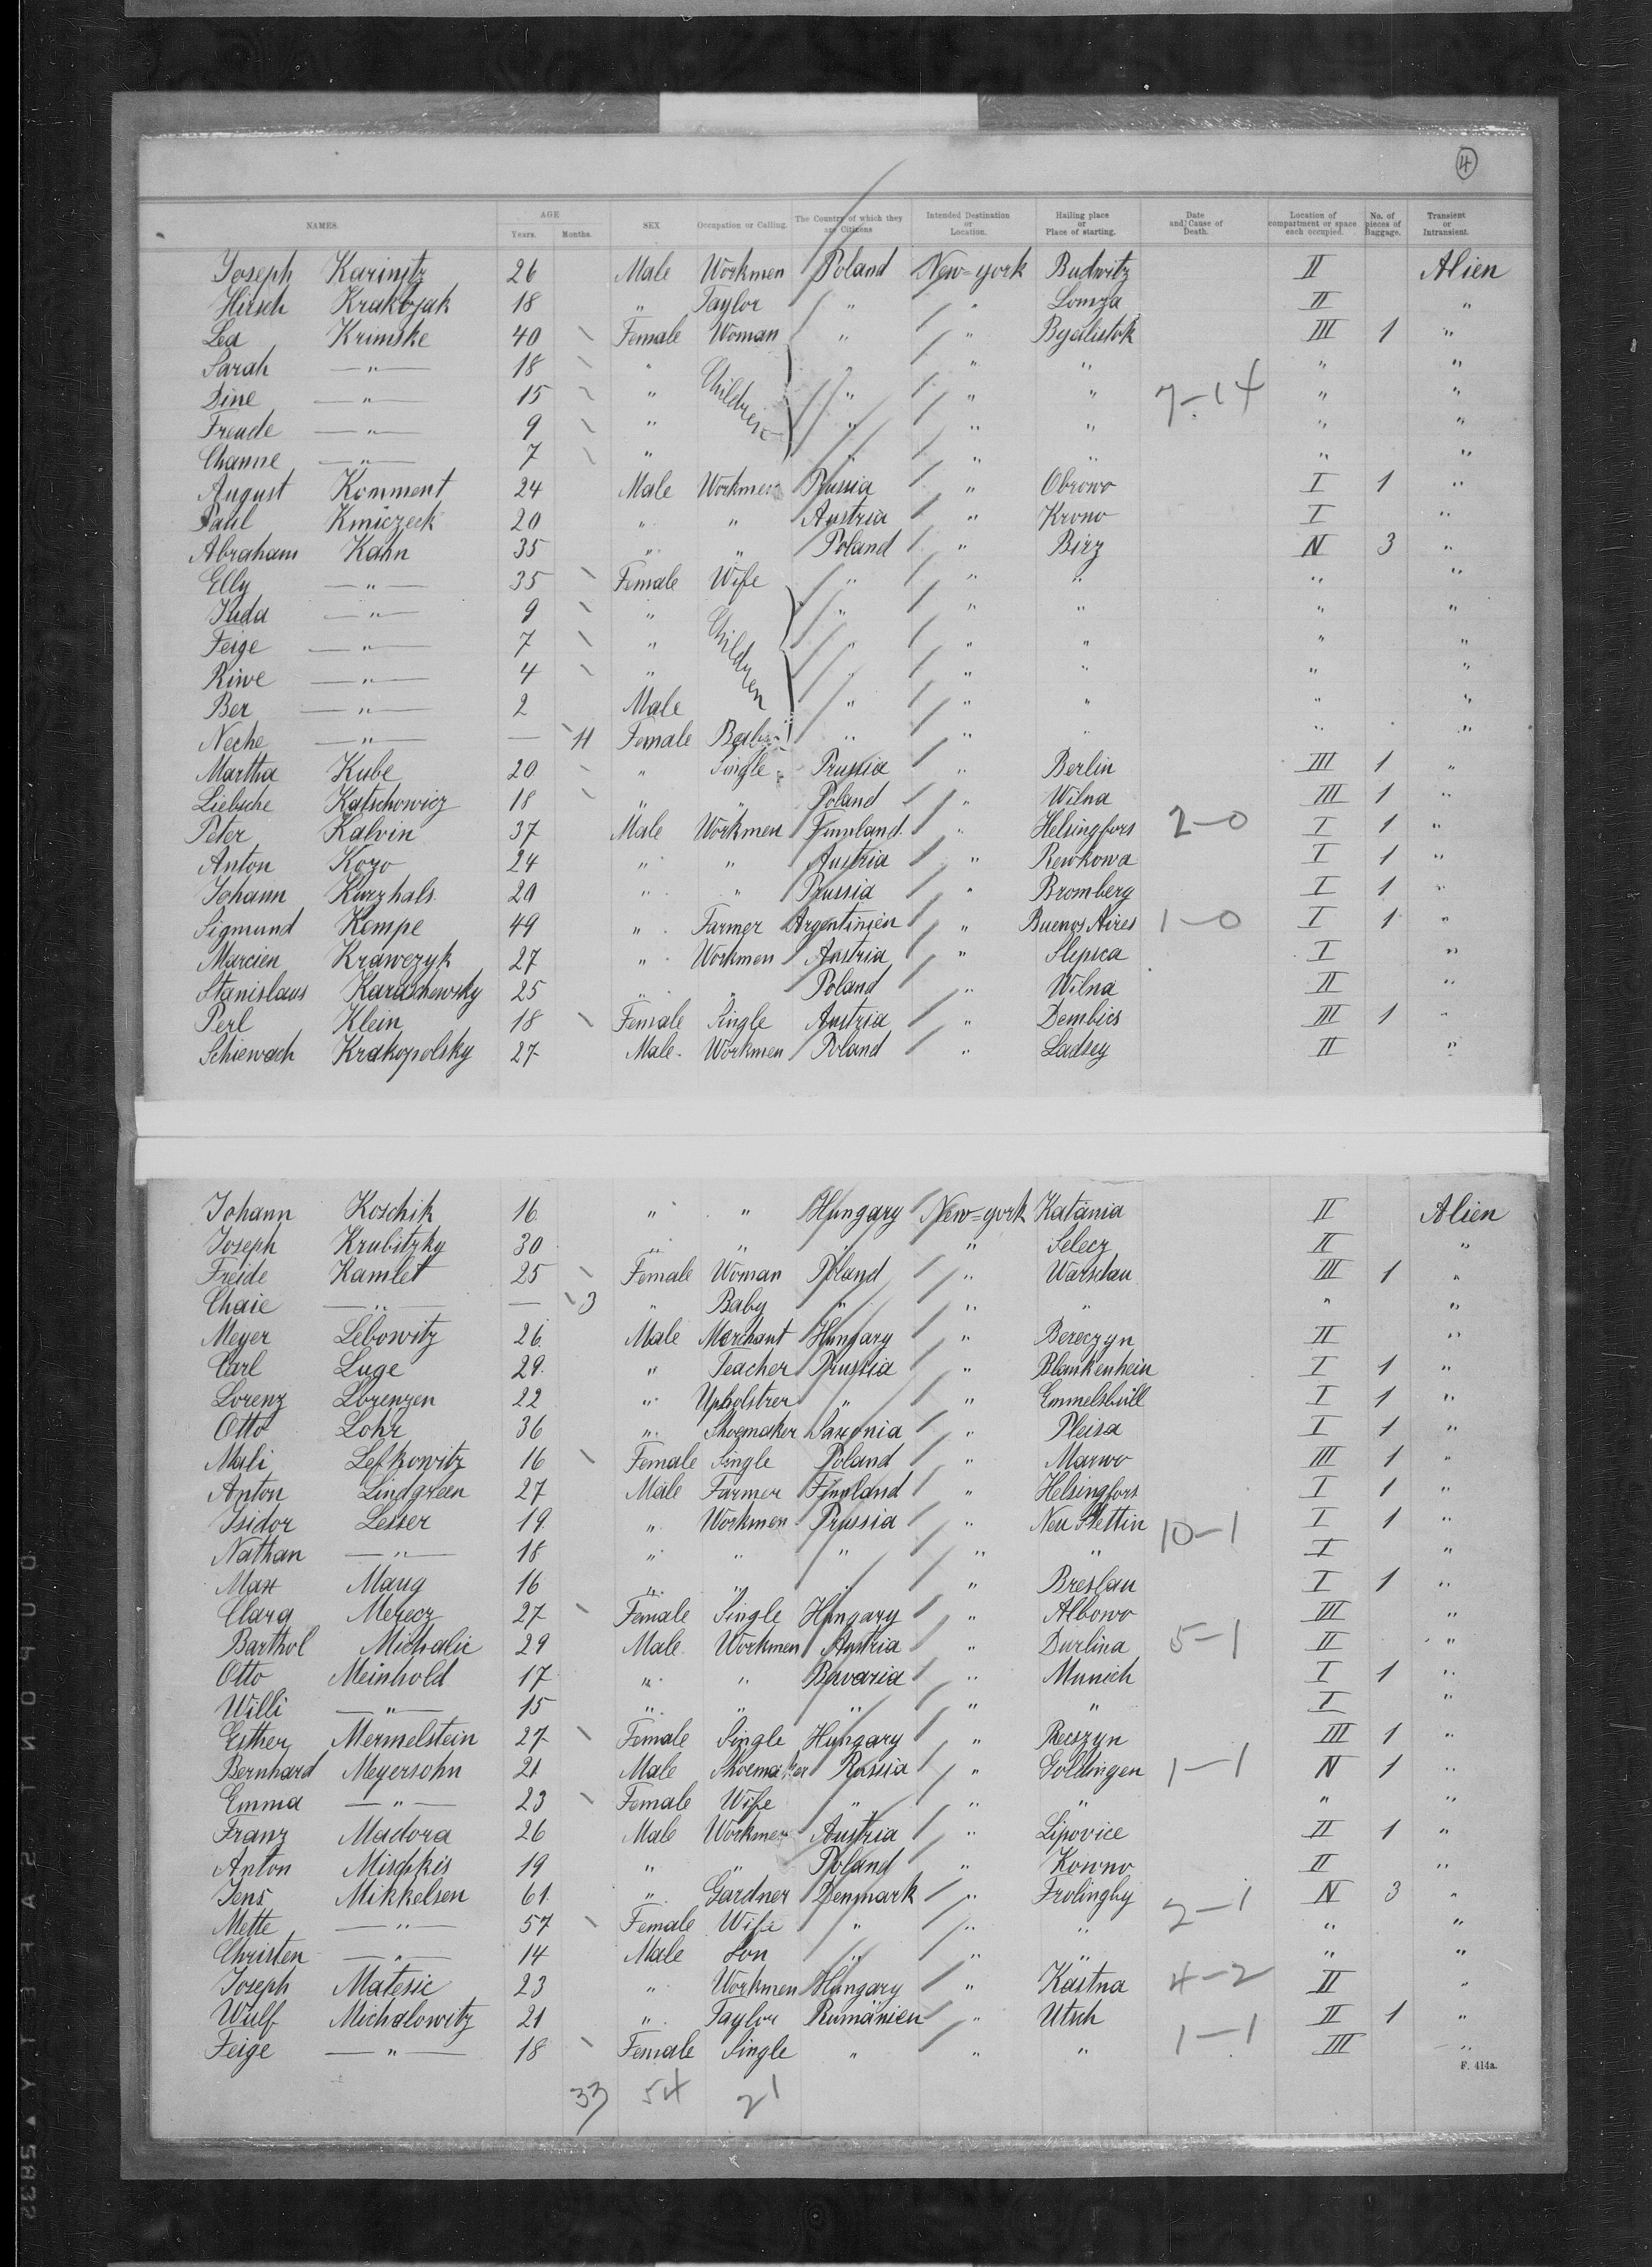 4
NAMES. AGE Years. Months. SEX Occupation or Calling. The Country of which they are Citizens Intended Destination or Location. Hailing place or Place of starting. Date and Cause of Death. Location of compartment or space each occupied. No. of pieces of Baggage. Transient or Intransient.
Joseph Karinitz 26 Male Workmen Poland New-york Budwitz II Alien
Hirsch Krakozak 18 " Taylor " " Lomza II "
Lea Krinske 40 Female Woman " " Byalistok III 1 "
Sarah —"— 18 " Children " " " "
Dine —"— 15 " " " " 7-14 " "
Freude —"— 9 " " " " " "
Channe —"— 7 " " " " " "
August Komment 24 Male Workmen Russia " Obrowo I 1 "
Paul Kmiczeck 20 " " Austria " Krono I "
Abraham Kahn 35 " " Poland " Birz N 3 "
Elly —"— 35 Female Wife " " " " "
Juda —"— 9 " Children " " " " "
Feige —"— 7 " " " " " "
Riwe —"— 4 " " " " " "
Ber —"— 2 Male " " " " "
Neche —"— — 11 Female Baby " " " " "
Martha Kube 20 " Single Prussia " Berlin III 1 "
Liebsche Katschowicz 18 " " Poland " Wilna III 1 "
Peter Kalvin 37 Male Workmen Finnland " Helsingfors 2-0 I 1 "
Anton Kozo 24 " " Austria " Rewkowa I 1 "
Johann Kurzhals 20 " " Prussia " Bromberg I 1 "
Sigmund Kempe 49 " Farmer Argentinien " Buenos Aires 1-0 I 1 "
Marcien Krawczyk 27 " Workmen Austria " Slepica I "
Stanislaus Karaschewsky 25 " " Poland " Wilna II "
Perl Klein 18 Female Single Austria " Dembics III 1 "
Schiewach Krakopolsky 27 Male Workmen Poland " Ladsey II "
Johann Koschik 16 " " Hungary New-york Katania II Alien
Joseph Krubitzky 30 " " " " Selecz II "
Freide Kamlet 25 Female Woman Poland " Warschau III 1 "
Chaie —"— — 3 " Baby " " " " "
Meyer Lebowitz 26 Male Merchant Hungary " Bereczyn II "
Carl Luge 29 " Teacher Prussia " Blankenhein I 1 "
Lorenz Lorenzen 22 " Upholstrer " " Emmelsbüll I 1 "
Otto Lohr 36 " Shoemaker Saxonia " Pleisa I 1 "
Mali Lefkowitz 16 Female Single Poland " Marwo III 1 "
Anton Lindgreen 27 Male Farmer Finnland " Helsingfors I 1 "
Isidor Lesser 19 " Workmen Prussia " Neu Stettin 10-1 I 1 "
Nathan —"— 18 " " " " " I "
Max Maug 16 " " " " Breslau I 1 "
Clara Merecz 27 Female Single Hungary " Albowo III "
Barthol Michalic 29 Male Workmen Austria " Durlina 5-1 II "
Otto Meinhold 17 " " Bavaria " Munich I 1 "
Willi —"— 15 " " " " " I "
Esther Mermelstein 27 Female Single Hungary " Recszyn III 1 "
Bernhard Meyersohn 21 Male Shoemaker Russia " Goldingen 1-1 N 1 "
Emma —"— 23 Female Wife " " " " "
Franz Madora 26 Male Workmen Austria " Lipovice II 1 "
Anton Mischkis 19 " " Poland " Kowno II "
Jens Mikkelsen 61 " Gardner Denmark " Frolingby 2-1 N 3 "
Mette —"— 57 Female Wife " " " " "
Christen —"— 14 Male Son " " " " "
Joseph Matesic 23 " Workmen Hungary " Kästna 4-2 II "
Wulf Michalowitz 21 " Taylor Rumänien " Utsch II 1 "
Feige —"— 18 Female Single " " " 1-1 III "
F. 414a.
33 54 21